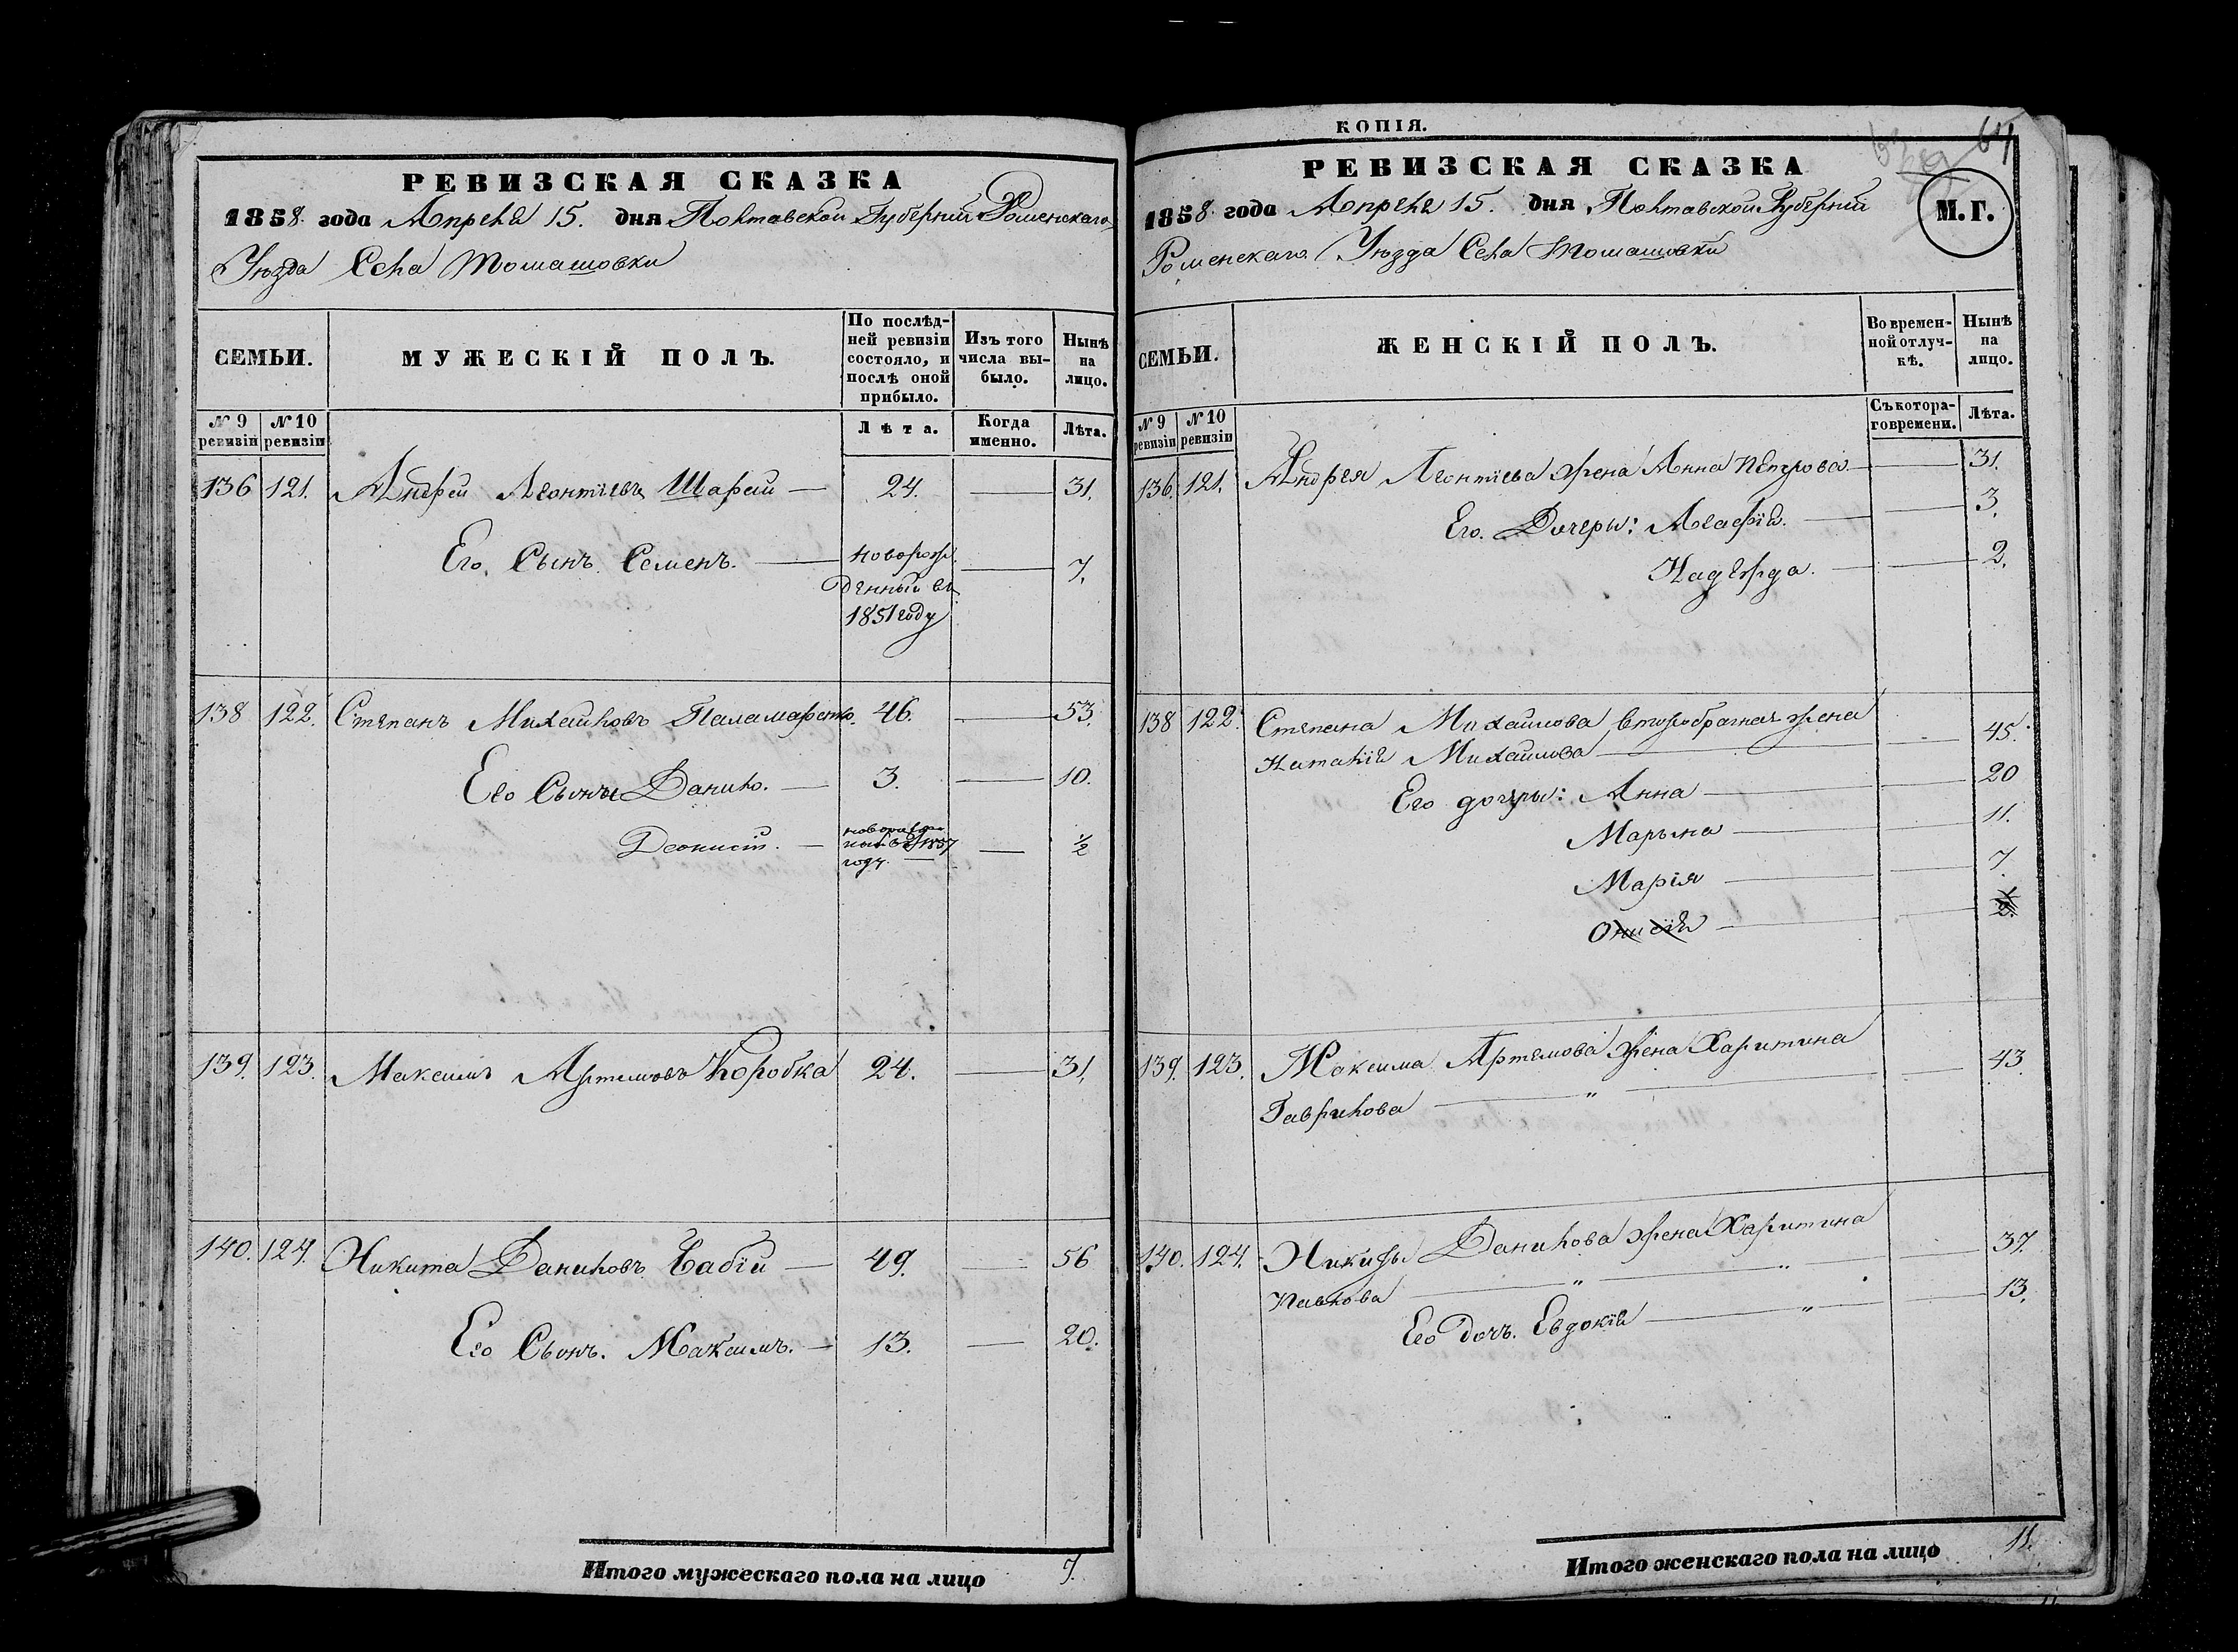 РЕВИЗСКАЯ СКАЗКА
1858 года Апреля 15. дня Полтавской Губерніи Роменскаго
Уюзда Села Томашовки
СЕМЬИ.
МУЖЕСКІЙ ПОЛЪ.
По послѣд-
ней ревизіи
состояло, и
послѣ оной
прибыло.
Изъ того
числа вы-
было.
Нынѣ
на
лицо.
№ 9 ревизіи
№ 10 ревизіи
Лѣта.
Когда
именно.
Лѣта.
136 121. Андрей Леонтіевъ Шарай — 24. — 31.
Его Сынъ Семенъ. — новорож
денный въ — 7.
1851 году
138 122. Степанъ Михайловъ Паламаренко. 46. — 53.
Его Сыны Данило. — 3. — 10.
Деонисій. — — ½
1857
году. —
139. 123. Максимъ Артемовъ Коробка 24. — 31.
140. 124. Никита Даниловъ Бабій — 49. — 56
Его Сынъ. Максимъ. — 13. — 20.
Итого мужескаго пола на лицо 7.
КОПІЯ.
64
РЕВИЗСКАЯ СКАЗКА
1858 года Апреля 15. дня Полтавской Губерніи
М.Г.
Роменскаго Уюзда Села Томашовки
СЕМЬИ.
ЖЕНСКІЙ ПОЛЪ.
Во времен-
ной отлуч-
кѣ.
Нынѣ
на
лицо.
№ 9 ревизіи
№ 10 ревизіи
Съ котора-
го времени.
Лѣта.
136. 121. Андрея Леонтіева жена Анна Петрова — 31.
Его. Дочеры: Агафія. — 3.
Надежда. — 2.
138 122. Степана Михаилова второбрачная жена
Наталія Михаилова — 45.
Его дочеры: Анна — 20
Марына — 11.
Марія — 7
Онисія —
139. 123. Максима Артемова жена Харитина
Гаврилова — " — 43
140. 124. Никиты Данилова жена Харитина
Павлова — " — " — 37.
Его дочь. Евдокія — " — 13.
Итого женскаго пола на лицо 11.